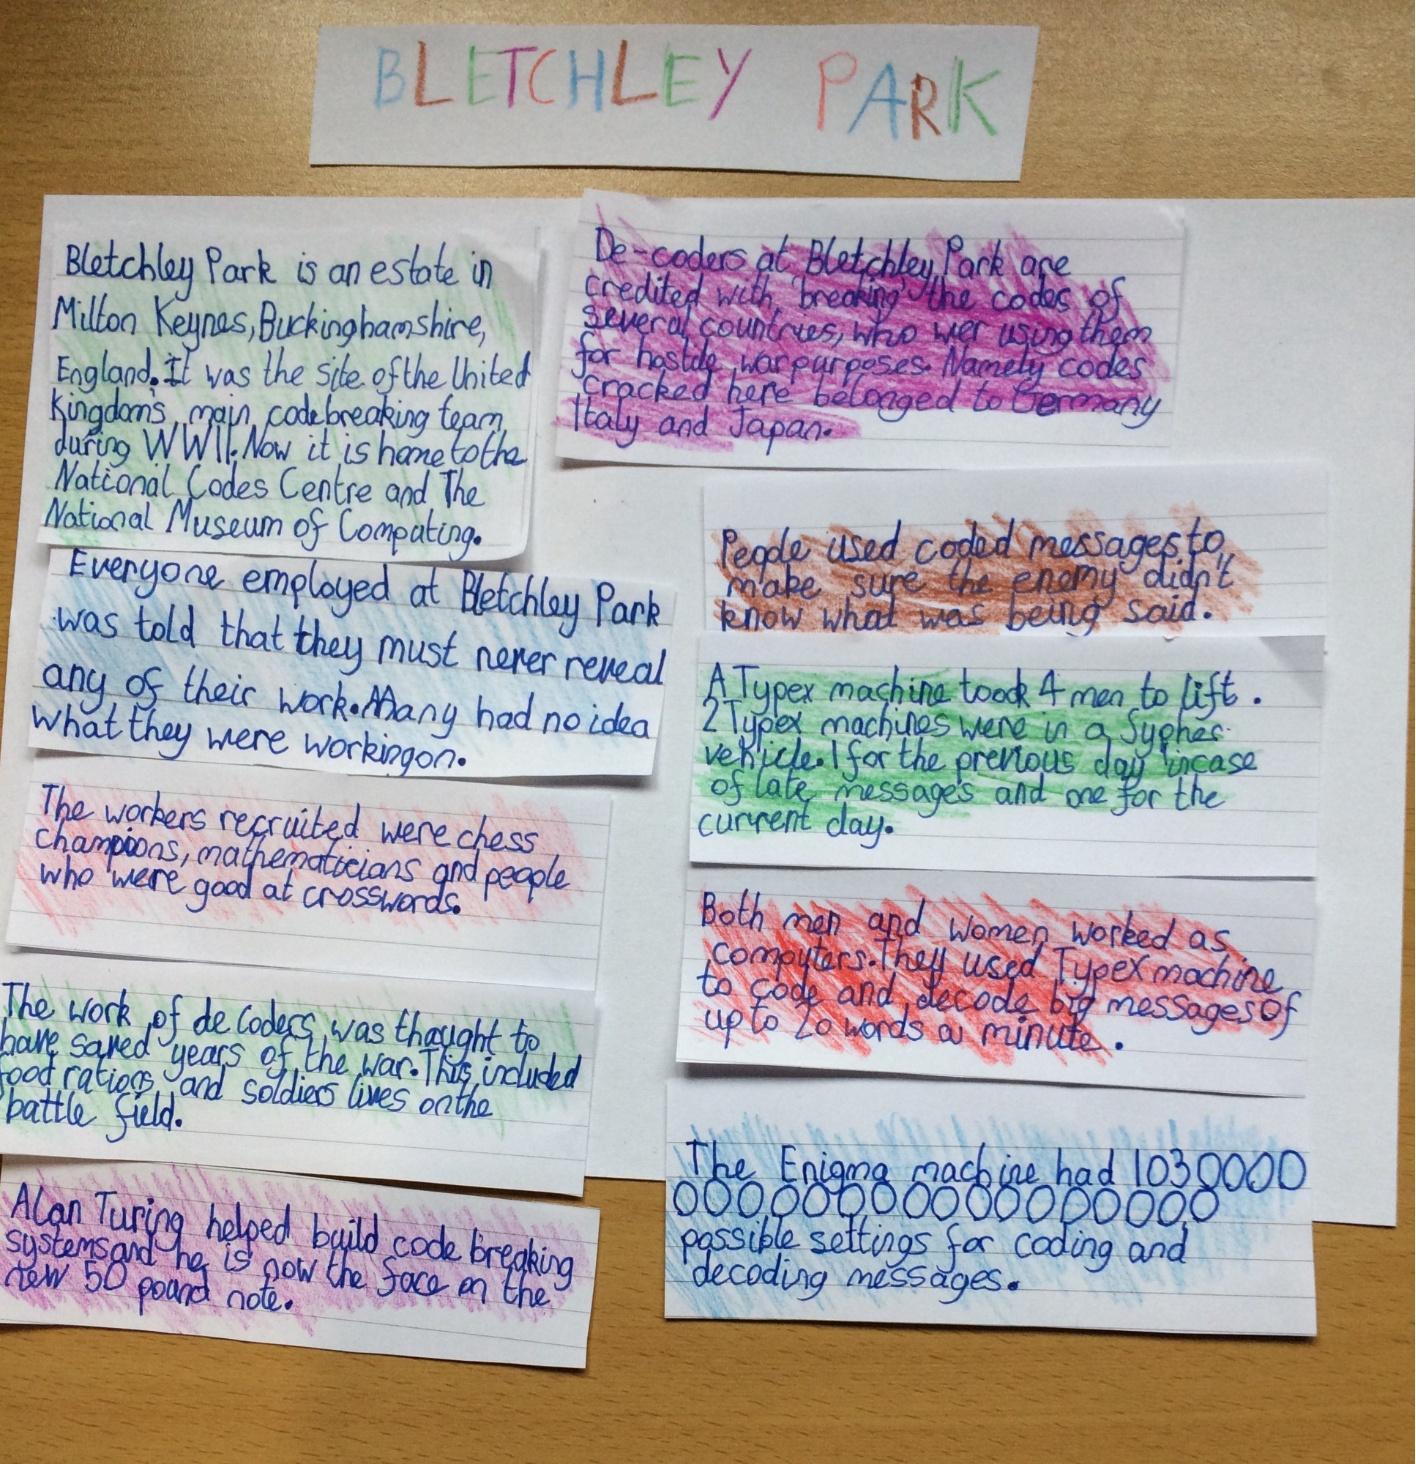 BLETCHLEY PARK
Bletchley Park is an estate in
Milton Keynes, Buckinghamshire,
England. It was the site of the United
Kingdom's main codebreaking team
during WWII. Now it is home to the
National Codes Centre and The
National Museum of Computing.
Everyone employed at Bletchley Park
was told that they must never reveal
any of their work. Many had no idea
what they were working on.
The workers recruited were chess
champions, mathematicians and people
who were good at crosswords.
The work of de coders was thought to
have saved years of the war. This included
food rations and soldiers lives on the
battle field.
Alan Turing helped build code breaking
systems and he is now the face on the
new 50 pound note.
De-coders at Bletchley Park are
credited with 'breaking' the codes of
several countries, who wer using them
for hostile war purposes. Namely codes
cracked here belonged to Germany
Italy and Japan.
People used coded messages to
make sure the enemy didn't
know what was being said.
A Typex machine took 4 men to lift.
2 Typex machines were in a Sypher
vehicle. 1 for the previous day incase
of late messages and one for the
current day.
Both men and women worked as
computers. They used Typex machine
to code and decode big messages of
up to 20 words a minute.
The Enigma machine had 1030000
0000000000000000
possible settings for coding and
decoding messages.